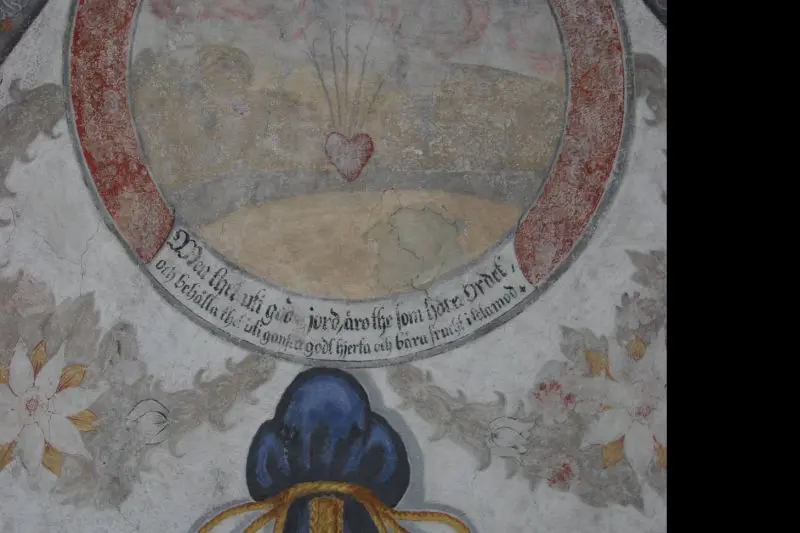 Men thet uti god jord, äro the som höra Ordet,
och behålla thet uti ganska godt hjerta och bära frucht i tolamod.